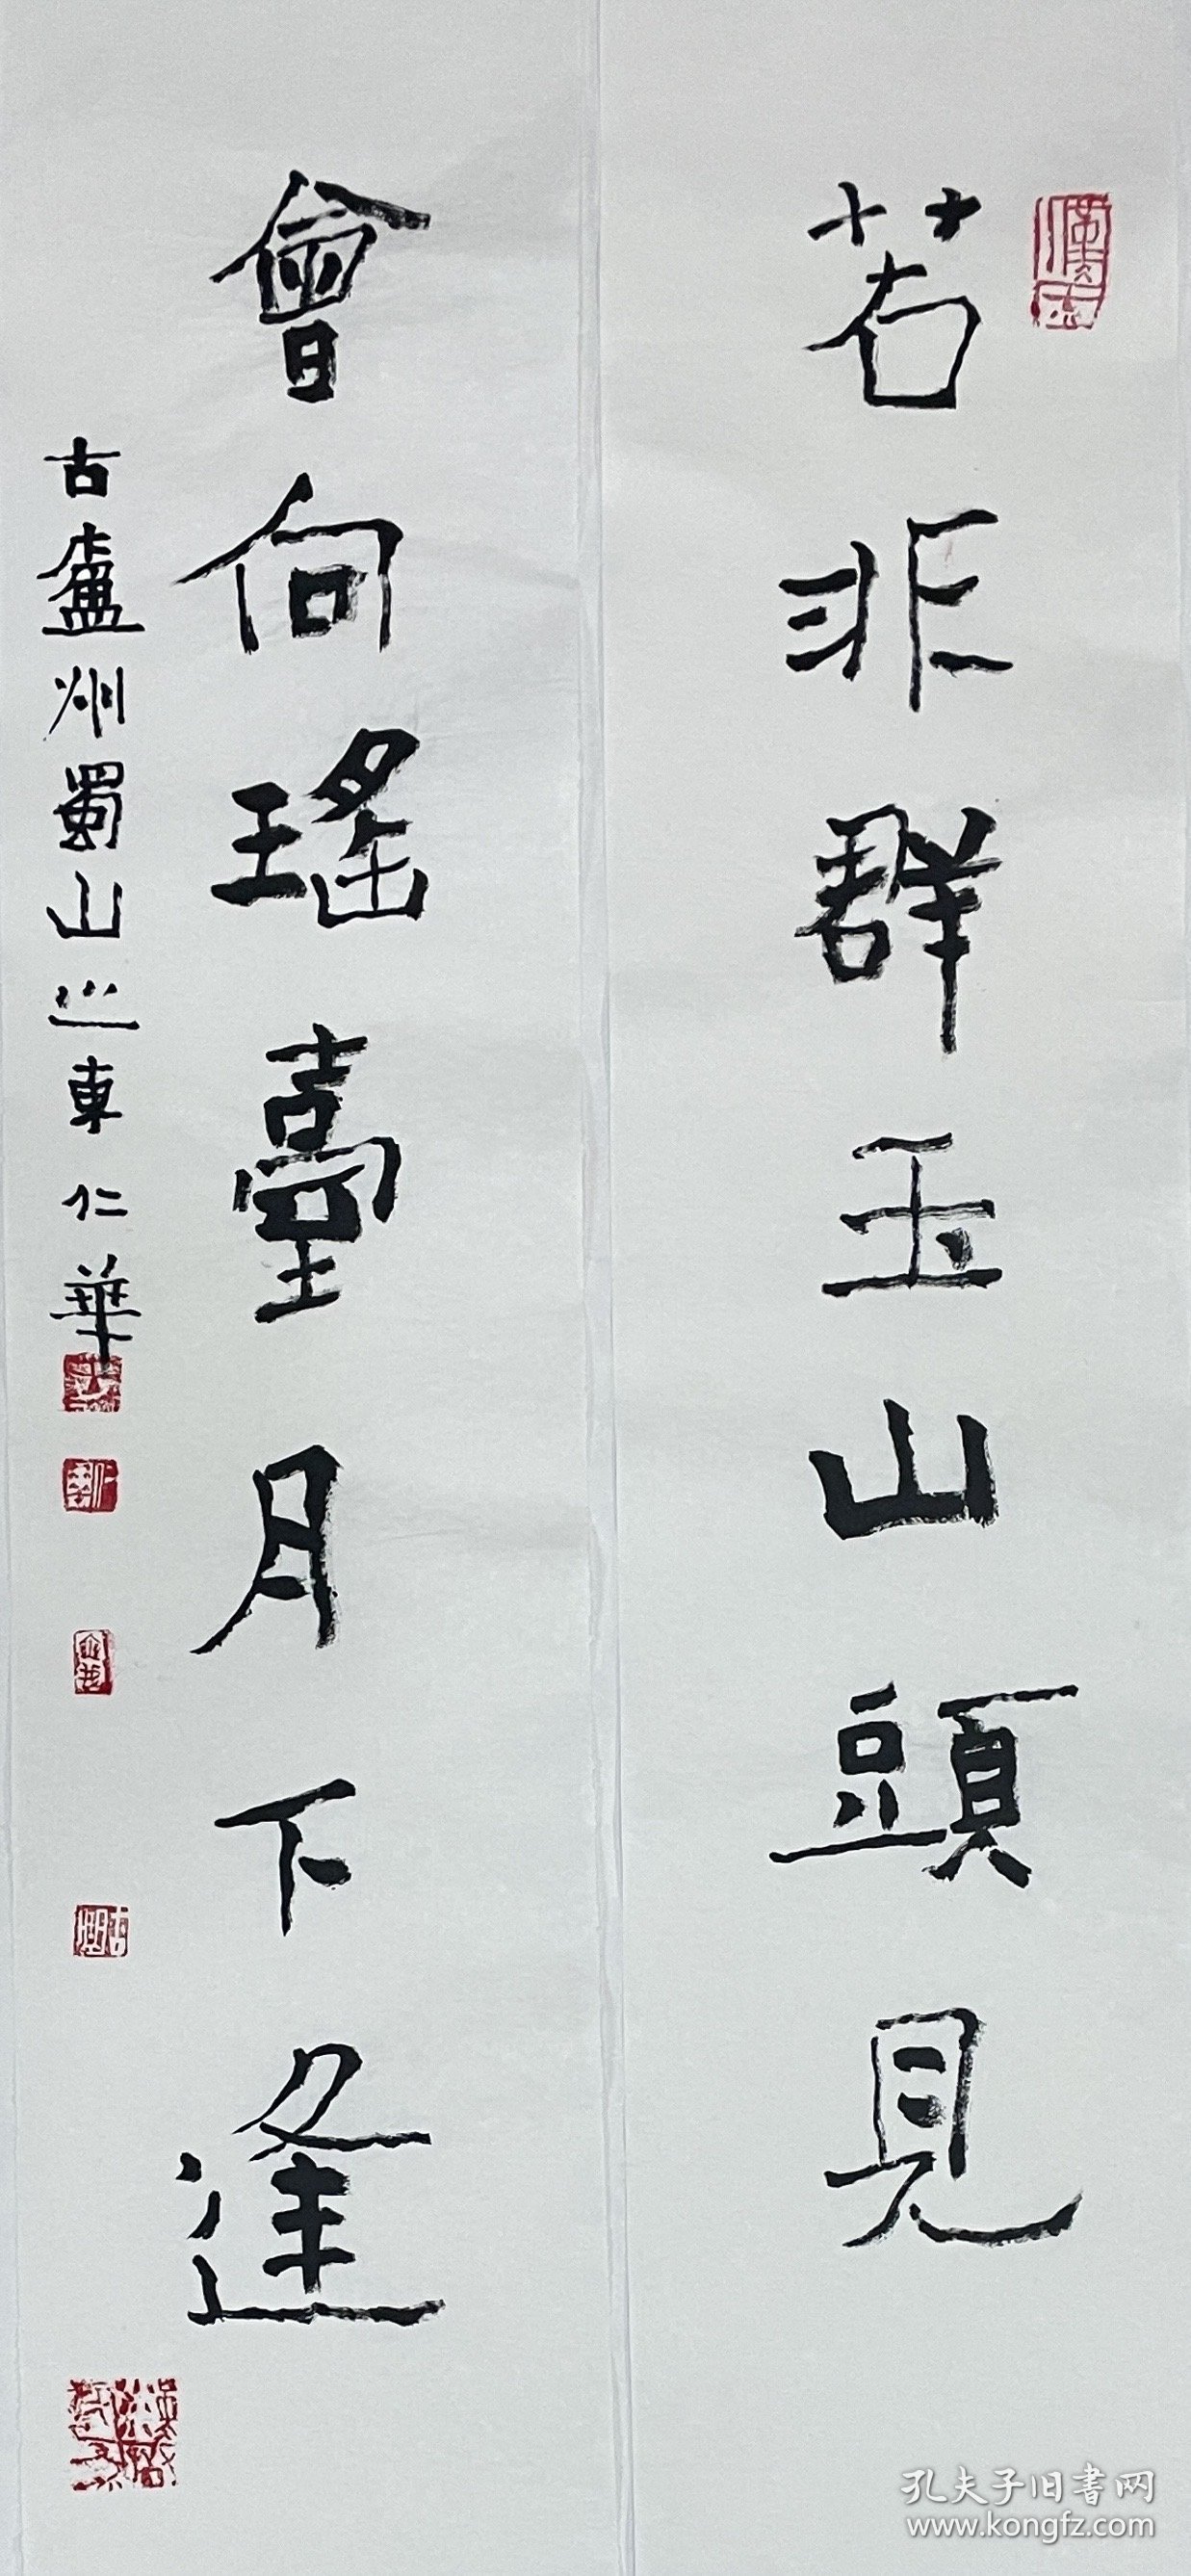 若非群玉山頭見
會向瑤臺月下逢
古廬州蜀山之東仁華
孔夫子旧書网
www.kongfz.com